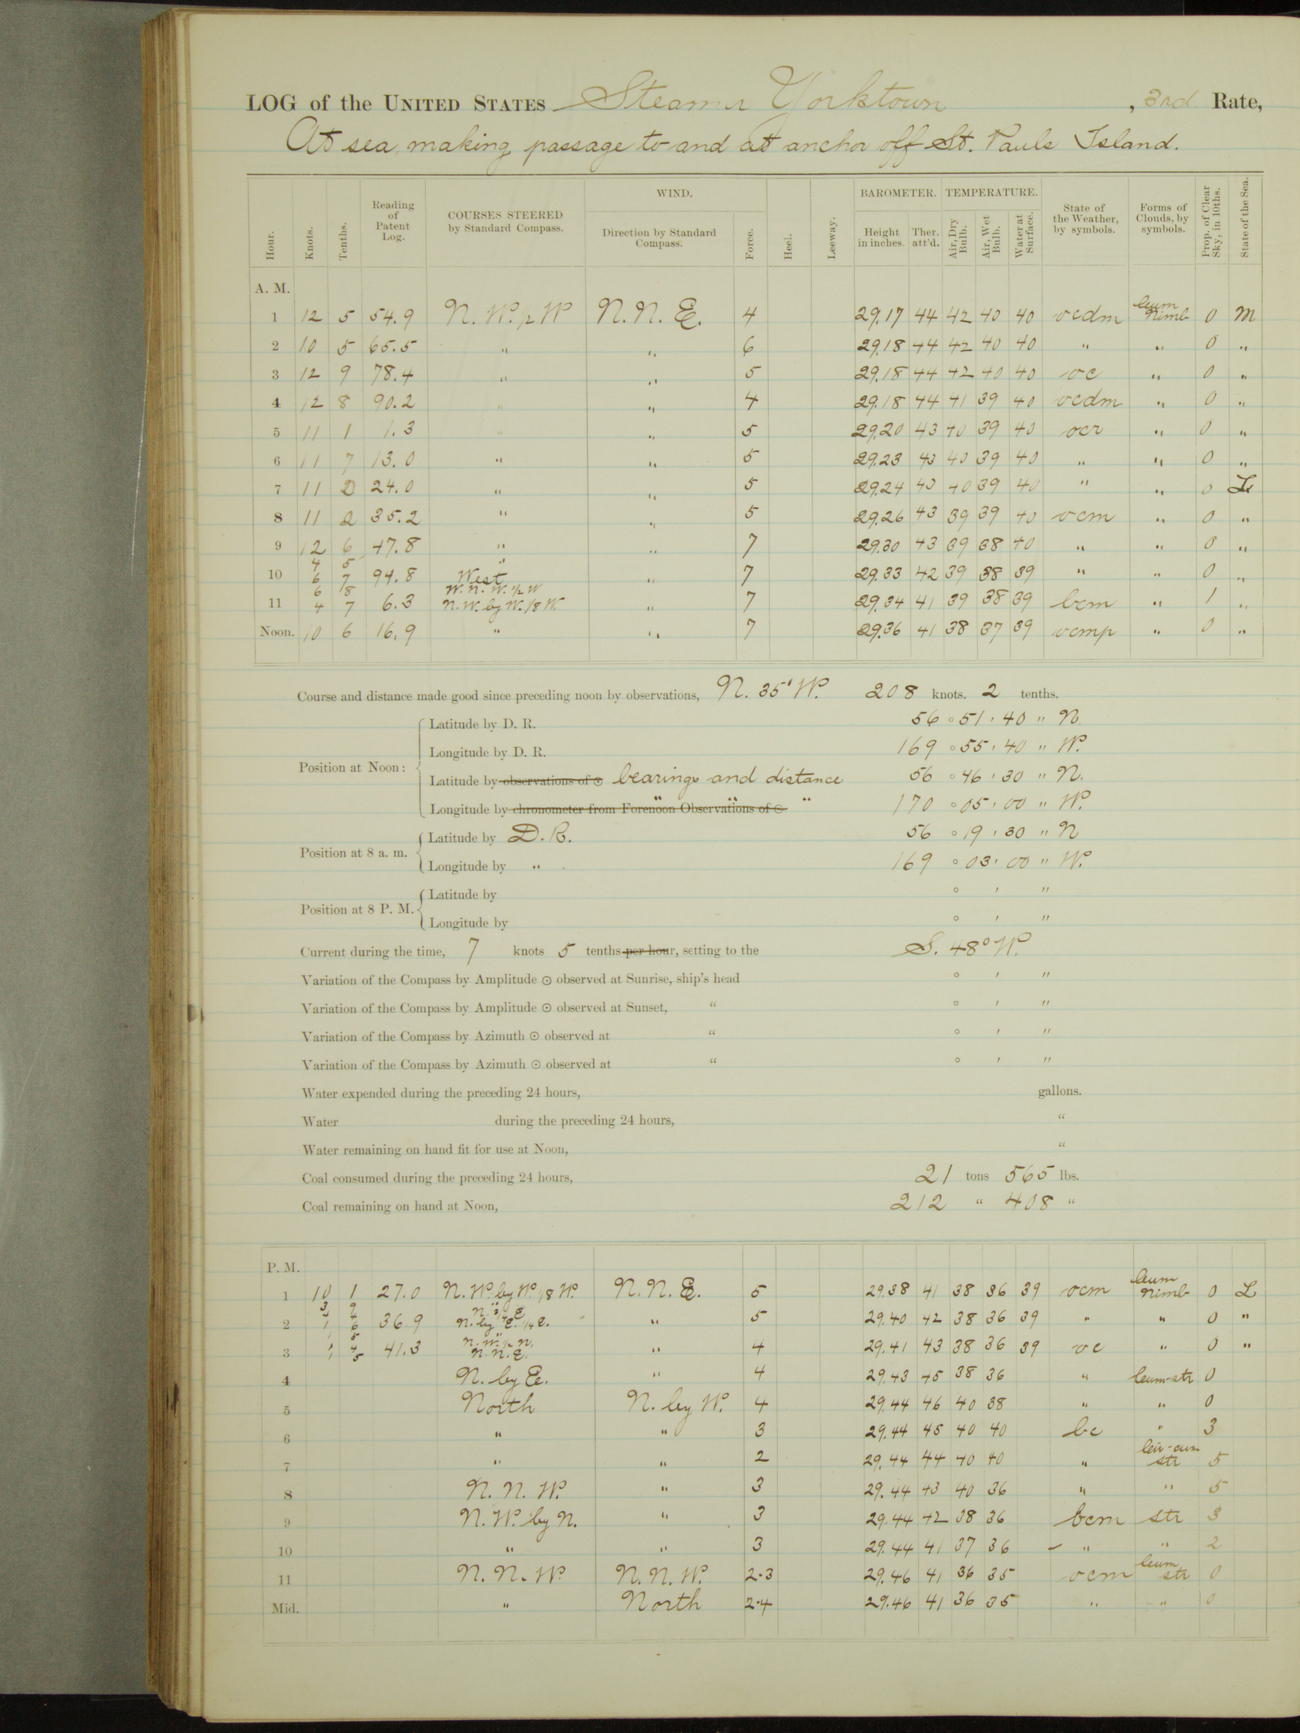 LOG of the UNITED STATES Steamer Yorktown , 3rd Rate,
At sea, making passage to and at anchor off St. Pauls Island.
Hour. Knots. Tenths. Reading of Patent Log. COURSES STEERED by Standard Compass. WIND. Direction by Standard Compass. Force. Heel. Leeway. BAROMETER. Height in inches. Ther. att'd. TEMPERATURE. Air, Dry Bulb. Air, Wet Bulb. Water at Surface. State of the Weather, by symbols. Forms of Clouds, by symbols. Prop. of Clear Sky, in 10ths. State of the Sea.
A. M.
1 12 5 54.9 N. W. ½ W N. N. E. 4 29.17 44 42 40 40 ocdm Cum Nimb 0 M
2 10 5 65.5 " " 6 29.18 44 42 40 40 " " 0 "
3 12 9 78.4 " " 5 29.18 44 42 40 40 oc " 0 "
4 12 8 90.2 " " 4 29.18 44 41 39 40 ocdm " 0 "
5 11 1 1.3 " " 5 29.20 43 40 39 40 ocr " 0 "
6 11 7 13.0 " " 5 29.23 43 40 39 40 " " 0 "
7 11 0 24.0 " " 5 29.24 43 40 39 40 " " 0 L
8 11 2 35.2 " " 5 29.26 43 39 39 40 ocm " 0 "
9 12 6 47.8 " " 7 29.30 43 39 38 40 " " 0 "
4 5 "
10 6 7 94.8 West " 7 29.33 42 39 38 39 " " 0 "
6 8 W. N. W. ½ W
11 4 7 6.3 N. W. by W. ⅛ W. " 7 29.34 41 39 38 39 bcm " 1 "
Noon. 10 6 16.9 " " 7 29.36 41 38 37 39 ocmp " 0 "
Course and distance made good since preceding noon by observations, N. 35° W. 208 knots. 2 tenths.
Position at Noon:
Latitude by D. R. 56 ° 51 ' 40 " N
Longitude by D. R. 169 ° 55 ' 40 " W.
Latitude by observations of ☉ bearings and distance 56 ° 46 ' 30 " N.
Longitude by chronometer from Forenoon Observations of ☉ " " " 170 ° 05 ' 00 " W.
Position at 8 a. m.
Latitude by D. R. 56 ° 19 ' 30 " N
Longitude by " 169 ° 03 ' 00 " W.
Position at 8 P. M.
Latitude by ° ' "
Longitude by ° ' "
Current during the time, 7 knots 5 tenths per hour, setting to the S. 48° W.
Variation of the Compass by Amplitude ☉ observed at Sunrise, ship's head ° ' "
Variation of the Compass by Amplitude ☉ observed at Sunset, " ° ' "
Variation of the Compass by Azimuth ☉ observed at " ° ' "
Variation of the Compass by Azimuth ☉ observed at " ° ' "
Water expended during the preceding 24 hours, gallons.
Water during the preceding 24 hours, "
Water remaining on hand fit for use at Noon, "
Coal consumed during the preceding 24 hours, 21 tons 565 lbs.
Coal remaining on hand at Noon, 212 " 408 "
P. M.
1 10 1 27.0 N. W. by W. ⅛ W. N. N. E. 5 29.38 41 38 36 39 ocm Cum Nimb 0 L
2 36.9 N. by E. ¼ E. " 5 29.40 42 38 36 39 " " 0 "
3 41.3 N. N. E. " 4 29.41 43 38 36 39 oc " 0 "
4 N. by E. " 4 29.43 45 38 36 " Cum-str 0
5 North N. by W. 4 29.44 46 40 38 " " 0
6 " " 3 29.44 45 40 40 bc " 3
7 " " 2 29.44 44 40 40 " Cir-cum str 5
8 N. N. W. " 3 29.44 43 40 36 " " 5
9 N. W. by N. " 3 29.44 42 38 36 bcm str 3
10 " " 3 29.44 41 37 36 " " 2
11 N. N. W. N. N. W. 2-3 29.46 41 36 35 ocm Cum str 0
Mid. " North 2-4 29.46 41 36 35 " " 0